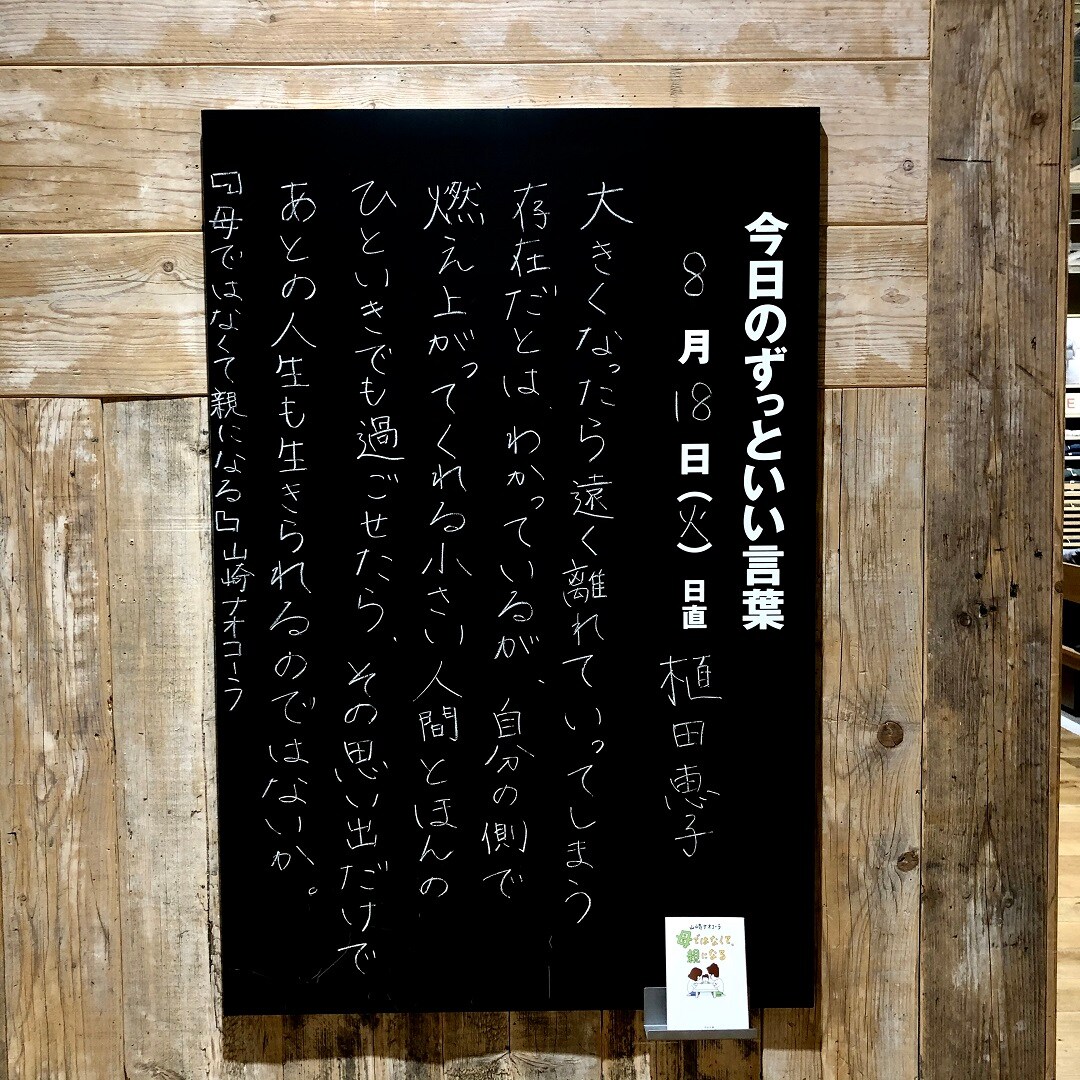 今日のずっといい言葉
8月18日(火)日直 植田恵子
大きくなったら遠く離れていってしまう
存在だとは、わかっているが、自分の側で
燃え上がってくれる小さい人間とほんの
ひといきでも過ごせたら、その思い出だけで
あとの人生も生きられるのではないか。
『母ではなくて親になる』山崎ナオコーラ
山崎ナオコーラ
母ではなくて、
親になる